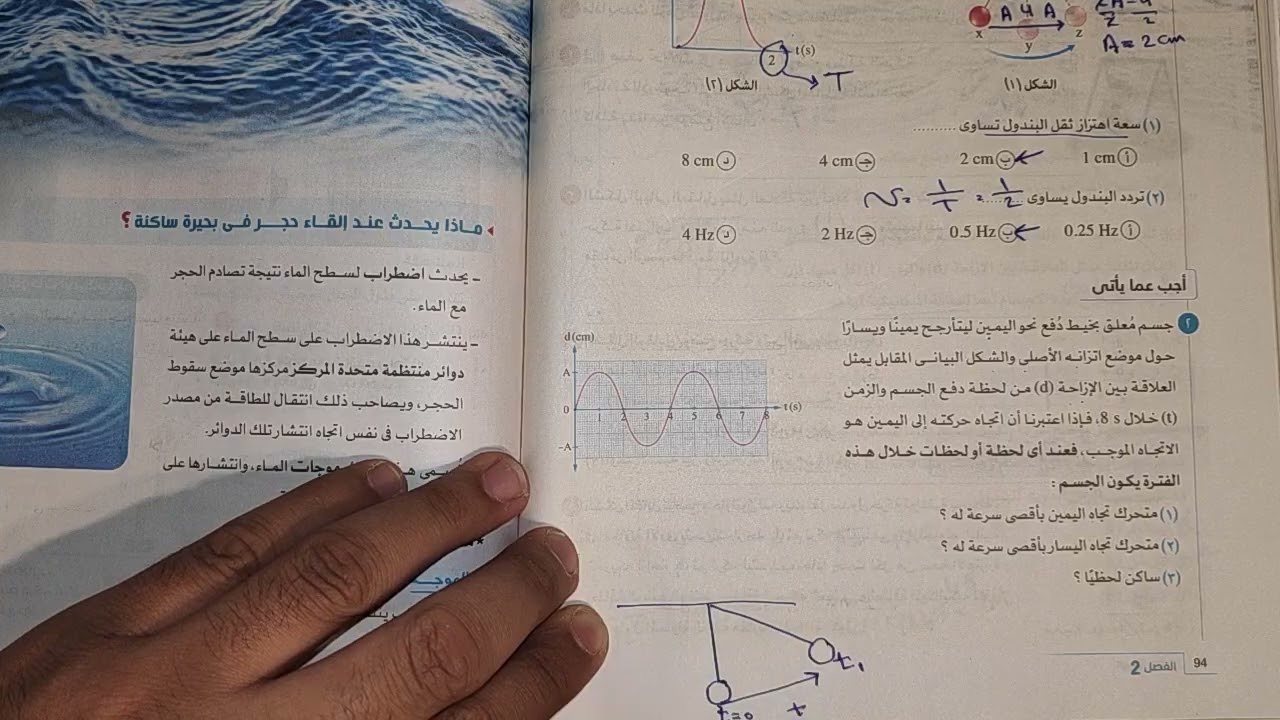 x
y
z
A
4
A
A = 2 cm
t(s)
2
T
الشكل (١)
الشكل (٢)
(١) سعة اهتزاز ثقل البندول تساوى ..........
أ 1 cm
ب 2 cm
جـ 4 cm
د 8 cm
(٢) تردد البندول يساوى ..........
= 1/T = 1/2
أ 0.25 Hz
ب 0.5 Hz
جـ 2 Hz
د 4 Hz
أجب عما يأتى
٢ جسم مُعلق بخيط دُفع نحو اليمين ليتأرجح يمينًا ويسارًا
حول موضع اتزانه الأصلى والشكل البيانى المقابل يمثل
العلاقة بين الإزاحة (d) من لحظة دفع الجسم والزمن
(t) خلال 8 s، فإذا اعتبرنا أن اتجاه حركته إلى اليمين هو
الاتجاه الموجب، فعند أى لحظة أو لحظات خلال هذه
الفترة يكون الجسم :
(١) متحرك تجاه اليمين بأقصى سرعة له ؟
(٢) متحرك تجاه اليسار بأقصى سرعة له ؟
(٣) ساكن لحظيًا ؟
d (cm)
A
0
–A
1 2 3 4 5 6 7 8
t(s)
t=0
الفصل 2
94
ماذا يحدث عند إلقاء حجر فى بحيرة ساكنة ؟
– يحدث اضطراب لسطح الماء نتيجة تصادم الحجر
مع الماء.
– ينتشر هذا الاضطراب على سطح الماء على هيئة
دوائر منتظمة متحدة المركز مركزها موضع سقوط
الحجر، ويصاحب ذلك انتقال للطاقة من مصدر
الاضطراب فى نفس اتجاه انتشار تلك الدوائر.
الماء، وانتشارها على